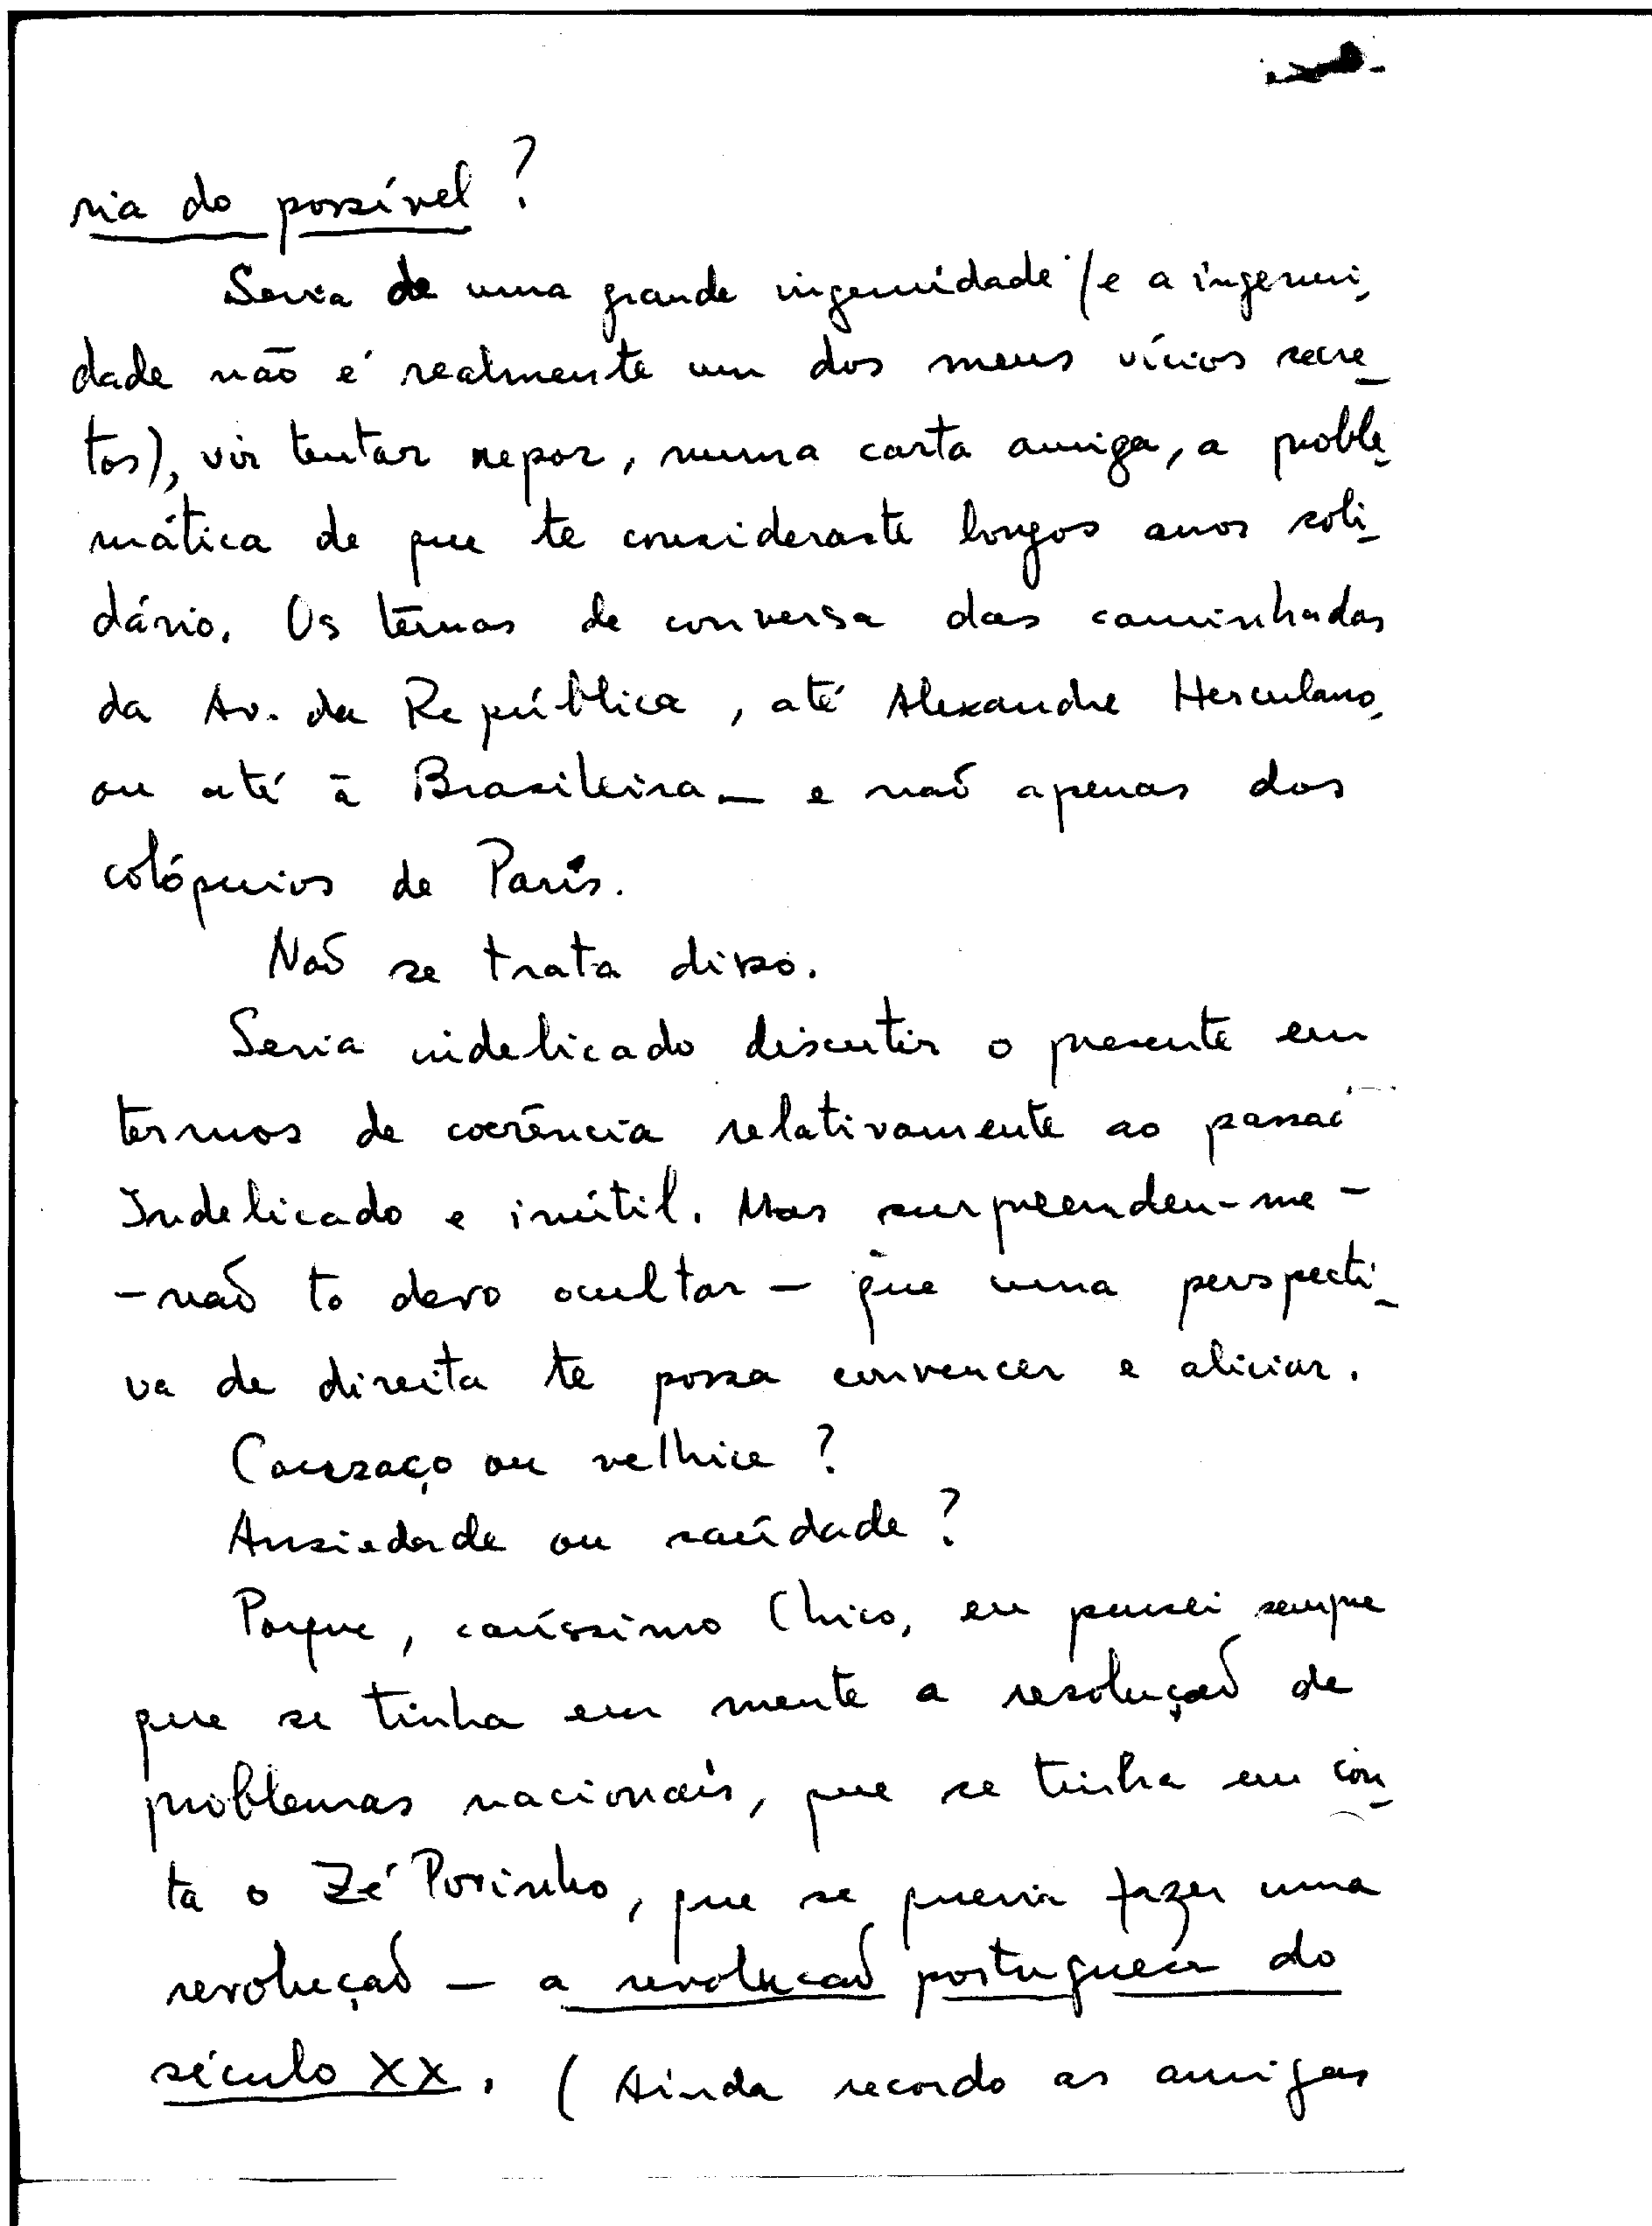 ria do possível?
Seria de uma grande ingenuidade (e a ingenui-
dade não é realmente um dos meus vícios secre-
tos), vir tentar repor, numa carta amiga, a proble-
mática de que te consideraste longos anos soli-
dário. Os têmas de conversa das caminhadas
da Av. da República, até Alexandre Herculano,
ou até à Brasileira — e não apenas dos
colóquios de Paris.
Não se trata disso.
Seria indelicado discutir o presente em
termos de coerência relativamente ao passad
Indelicado e inútil. Mas surpreendeu-me -
- não to devo ocultar - que uma perspecti-
va de direita te possa convencer e aliciar.
Cansaço ou velhice?
Ansiedade ou saüdade?
Porque, caríssimo Chico, eu pensei sempre
que se tinha em mente a resolução de
problemas nacionais, que se tinha em con-
ta o Zé Povinho, que se queria fazer uma
revolução — a revolucão portuguesa do
século XX. (Ainda recordo as amigas